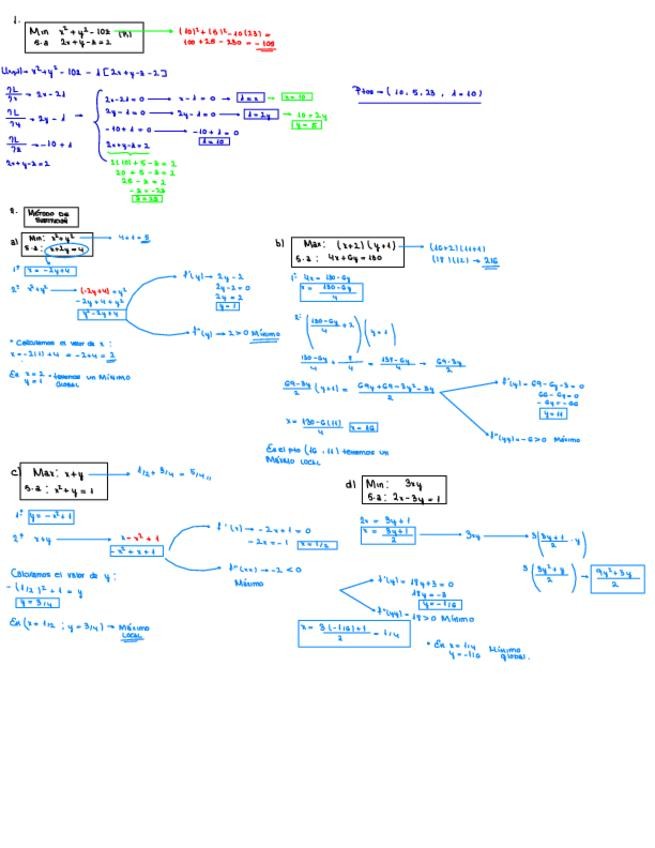 1.
Min x²+y²-10z (n)
s.a 2x+y-z=2
(10)²+(5)²-10(23)=
100+25-230=-105
x²+y²-10z-λ[2x+y-z-2]
Ptos → (10,5,23, λ=10)
∂L/∂x → 2x-2λ
∂L/∂y → 2y-λ
∂L/∂z → -10+λ
2x+y-z=2
2x-2λ=0 → x-λ=0 → λ=x → x=10
2y-λ=0 → 2y-λ=0 → λ=2y → 10=2y
y=5
-10+λ=0 → -10+λ=0
λ=10
2x+y-z=2
2(10)+5-z=2
20+5-z=2
25-z=2
-z=-23
z=23
2. MÉTODO DE
a) Min: x²+y² → 4+1=5
s.a: x+2y=4
1º x=-2y+4
2º x²+y² → (-2y+4)+y²
-2y+4+y²
y²-2y+4
f'(y) → 2y-2
2y-2=0
2y=2
y=1
f''(y) → 2>0 Mínimo
• Calculamos el valor de x:
x=-2(1)+4=-2+4=2
En x=2
y=1 → tenemos un Mínimo
GLOBAL
b) Max: (x+2)(y+1) → (16+2)(11+1)
s.a: 4x+6y=130
(18)(12) → 216
1º 4x=130-6y
x=130-6y/4
2º (130-6y/4+2)(y+1)
130-6y/4+8/4=138-6y/4 → 69-3y/2
69-3y/2 (y+1)=69y+69-3y²-3y/2
f'(y)=69-6y-3=0
66-6y=0
-6y=-66
y=11
f''(yy)=-6>0 Máximo
x=130-6(11)/4 x=16
En el pto (16,11) tenemos un
Máximo LOCAL
c) Max: x+y → 1/2+3/4=5/4
s.a: x²+y=1
1º y=-x²+1
2º x+y → x-x²+1
-x²+x+1
f'(x) → -2x+1=0
-2x=-1 x=1/2
f''(xx) → -2<0
Máximo
Calculamos el valor de y:
-(1/2)²+1=y
y=3/4
En (x=1/2; y=3/4) → Máximo
LOCAL
d) Min: 3xy
s.a: 2x-3y=1
2x=3y+1
x=3y+1/2 → 3xy → 3(3y+1/2·y)
3(3y²+y/2) → 9y²+3y/2
f'(y)=18y+3=0
18y=-3
y=-1/6
f''(yy)=18>0 Mínimo
x=3(-1/6)+1/2=1/4
• En x=1/4
y=-1/6 Mínimo
global.